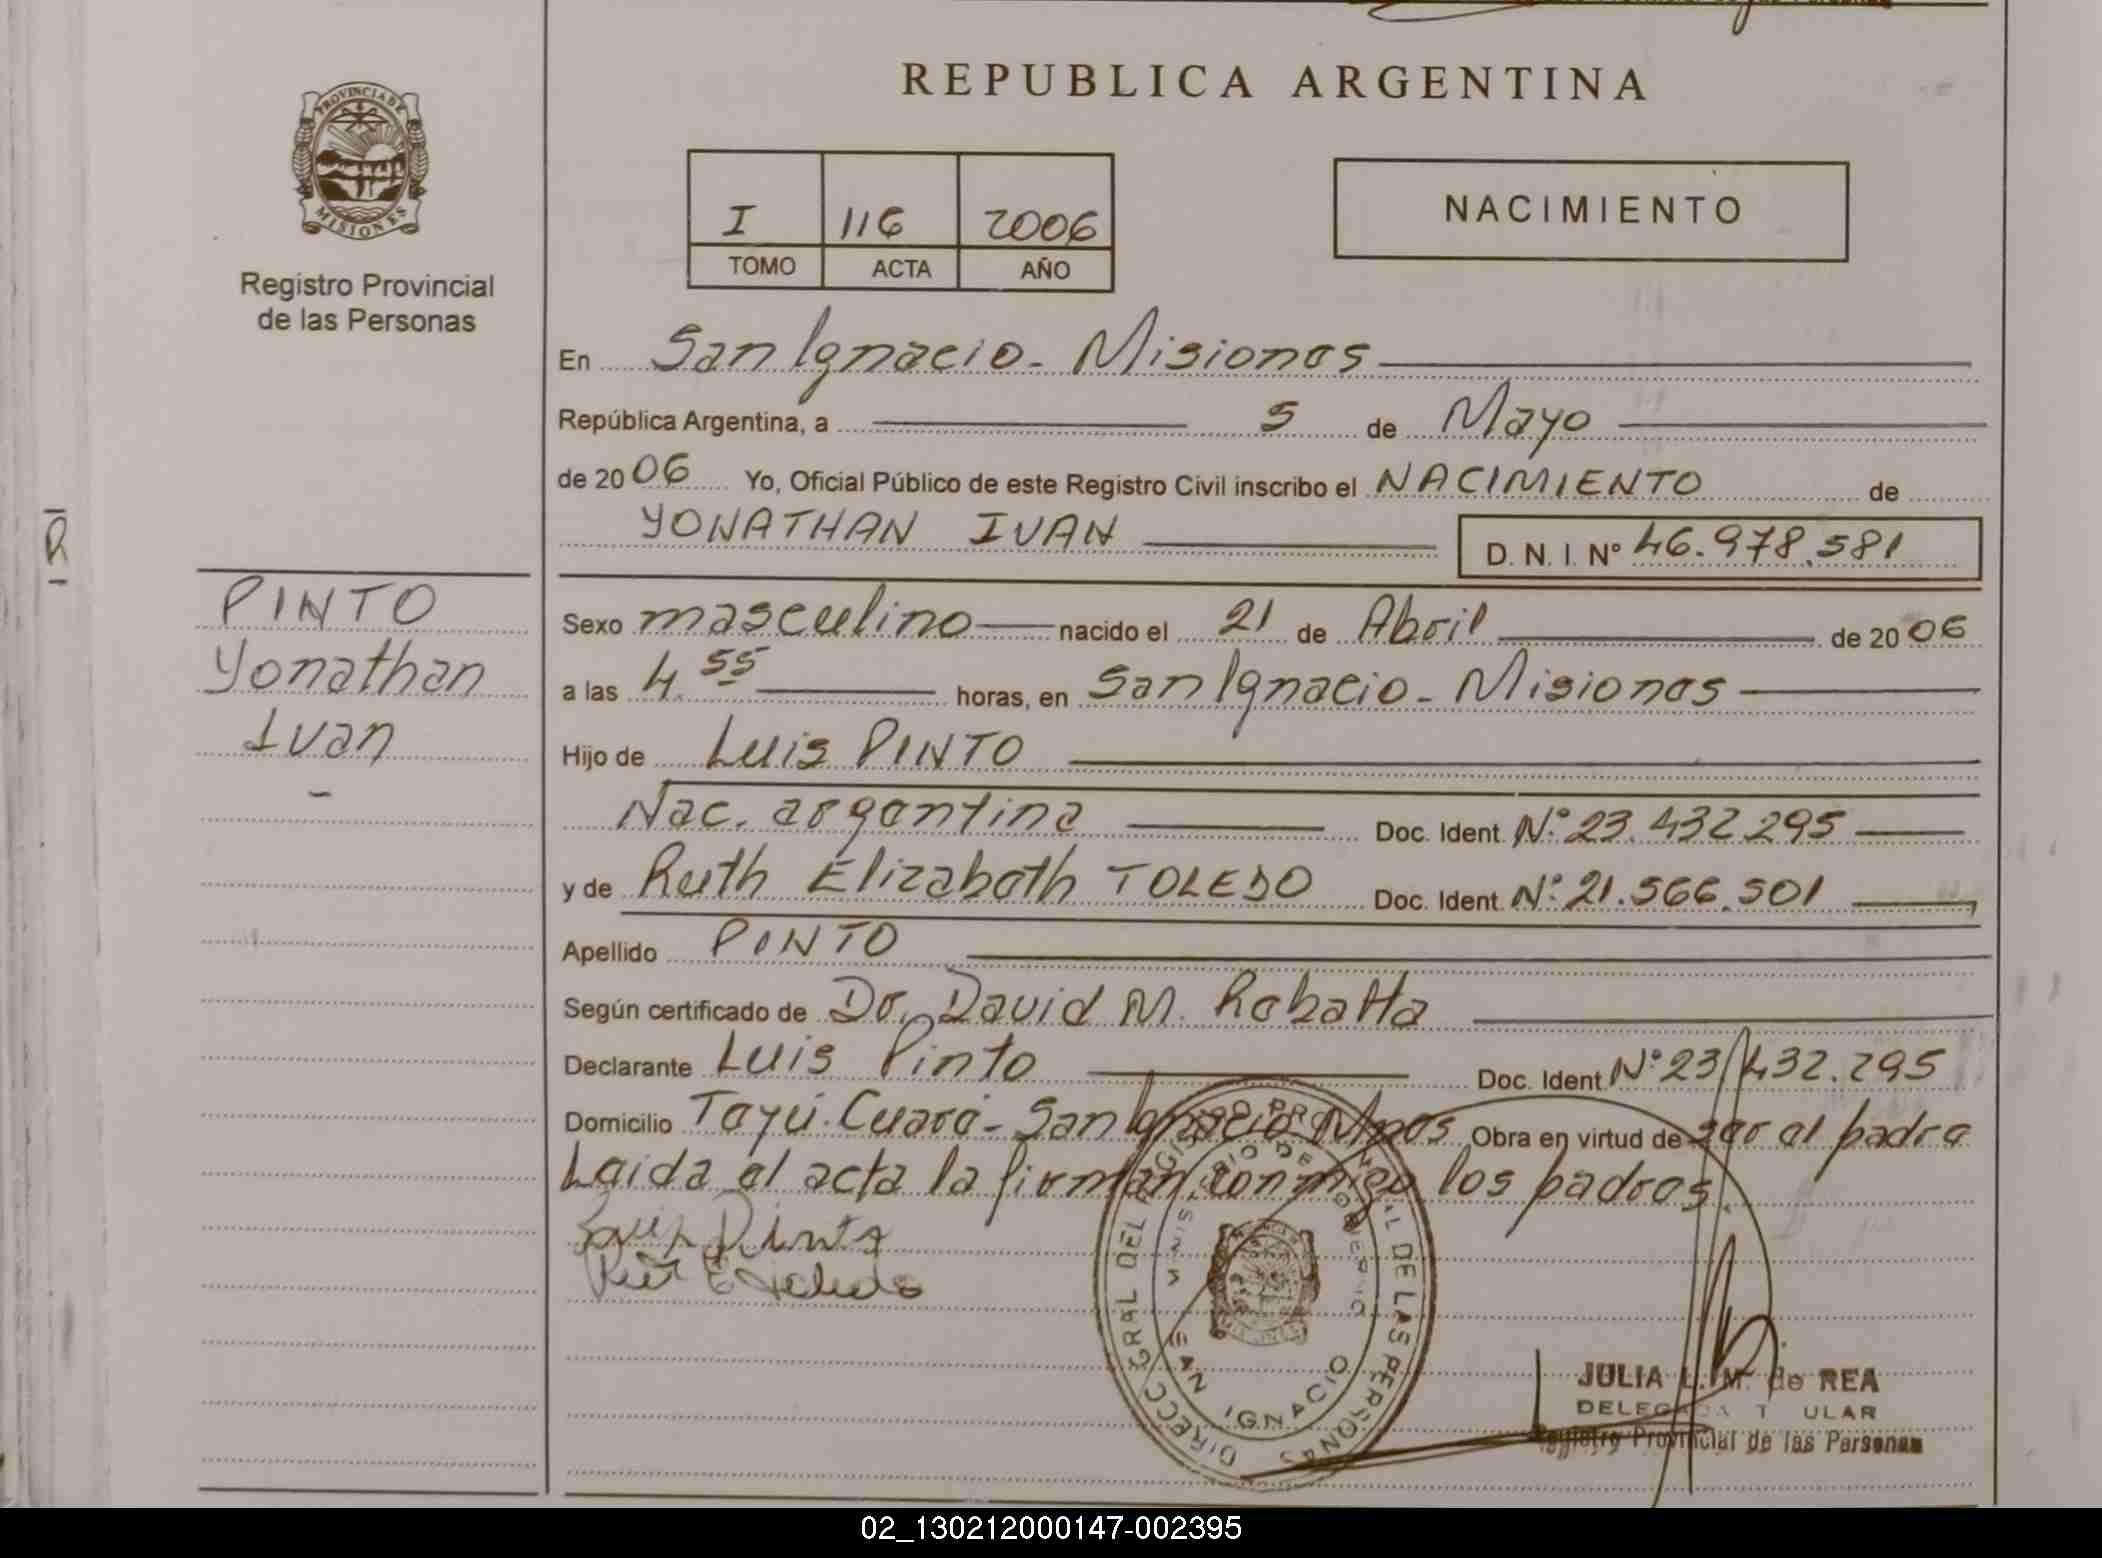 REPUBLICA ARGENTINA
PROVINCIA DE
MISIONES
Registro Provincial
de las Personas
I 116 2006
TOMO ACTA AÑO
NACIMIENTO
En San Ignacio - Misiones
República Argentina, a 5 de Mayo
de 2006 Yo, Oficial Público de este Registro Civil inscribo el NACIMIENTO de
YONATHAN IVAN D. N. I. Nº 46.978.581
R
PINTO
Yonathan
Ivan
Sexo masculino nacido el 21 de Abril de 2006
a las 4.55 horas, en San Ignacio - Misiones
Hijo de Luis PINTO
Nac. argentina Doc. Ident. Nº 23.432.295
y de Ruth Elizabeth TOLEDO Doc. Ident. Nº 21.566.501
Apellido PINTO
Según certificado de Dr. David M.
Declarante Luis Pinto Doc. Ident Nº 23.432.295
Domicilio Tayú-Cuaré - San Ignacio Mnes Obra en virtud de ser el padre
Leida el acta la firman conmigo los padres.
Luis Pinto
Ruth E Toledo
DIRECC GRAL DEL REGISTRO PROVINCIAL DE LAS PERSONAS
MINISTERIO DE GOBIERNO
SAN IGNACIO
JULIA L. M. de REA
DELEGADA TITULAR
Registro Provincial de las Personas
02_130212000147-002395